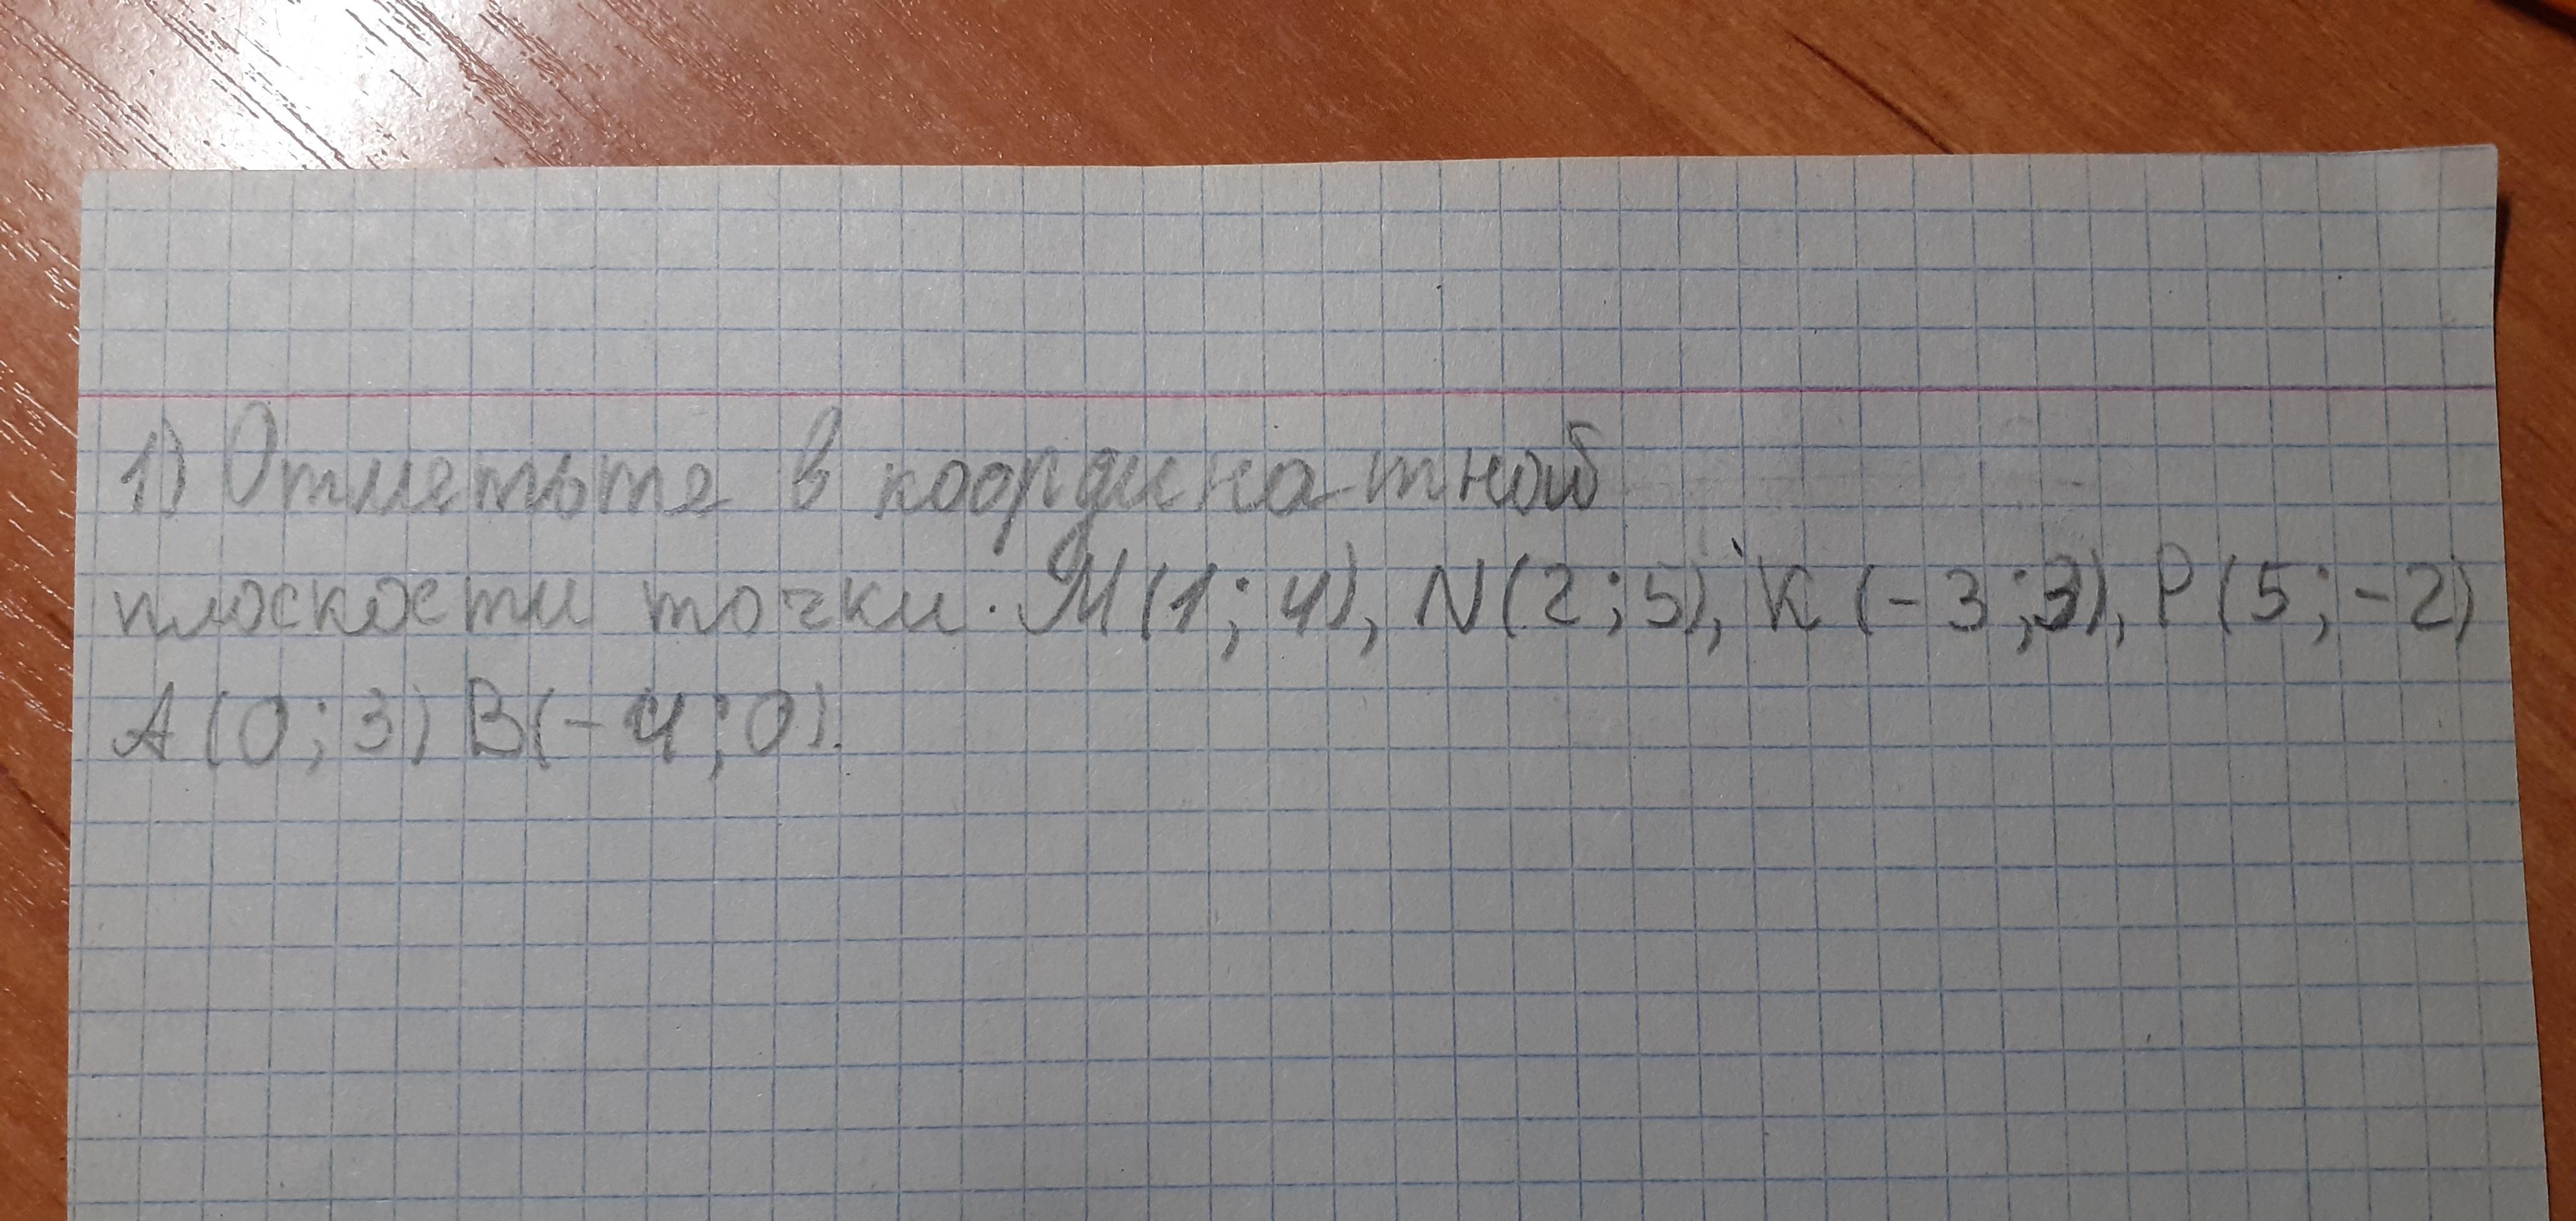 1) Отметьте в координатной
плоскости точки. М(1; 4), N(2; 5), К(-3; 3), Р(5; -2)
А(0; 3) В(-4; 0).